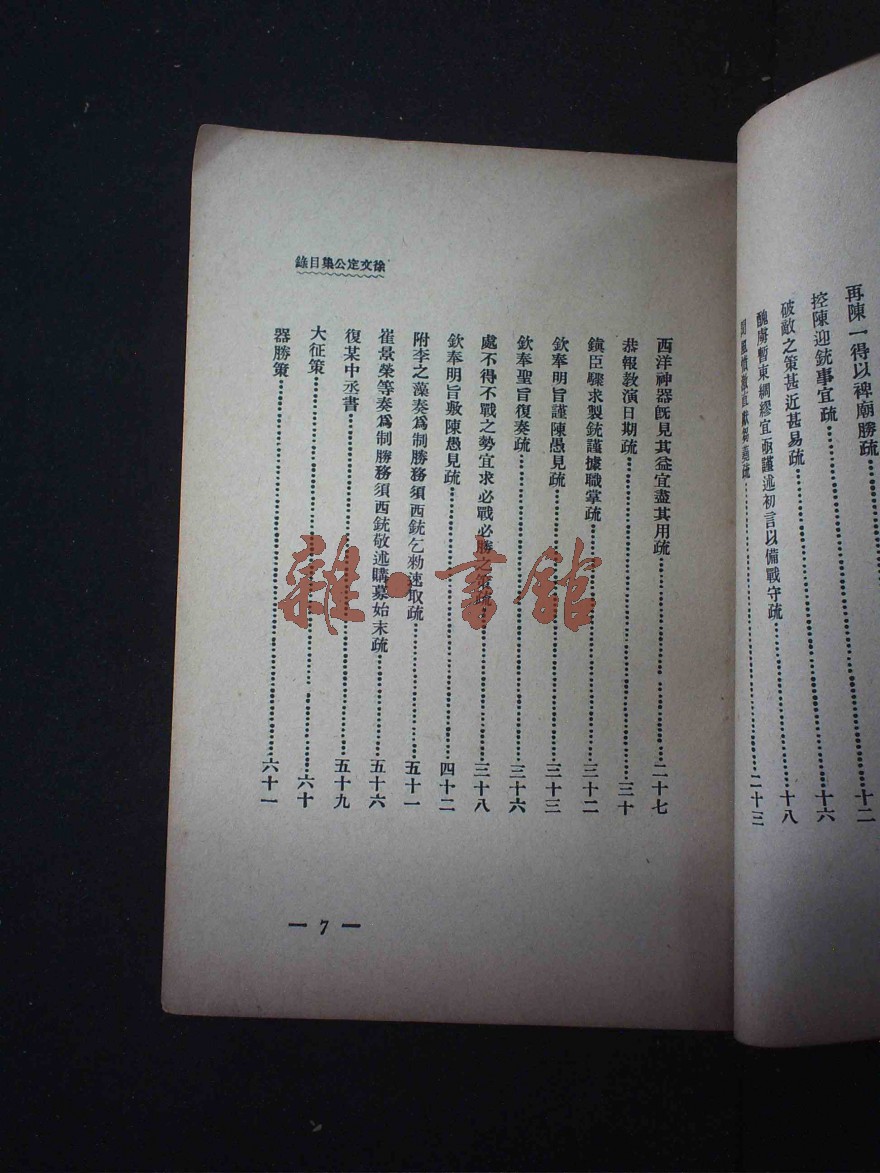 再陳一得以裨廟勝疏……十二
控陳迎銃事宜疏……十六
破敵之策甚近甚易疏……十八
醜虜暫東綢繆宜亟謹述初言以備戰守疏
疏……二十三
徐文定公集目錄
西洋神器旣見其益宜盡其用疏……二十七
恭報敎演日期疏……三十
鎭臣驟求製銃謹據職掌疏……三十二
欽奉明旨謹陳愚見疏……三十三
欽奉聖旨復奏疏……三十六
處不得不戰之勢宜求必戰必勝之策疏……三十八
欽奉明旨敷陳愚見疏……四十二
附李之藻奏爲制勝務須西銃乞勅速取疏……五十一
崔景榮等奏爲制勝務須西銃敬述購募始末疏……五十六
復某中丞書……五十九
大征策……六十
器勝策……六十一
— 7 —
雜·書館